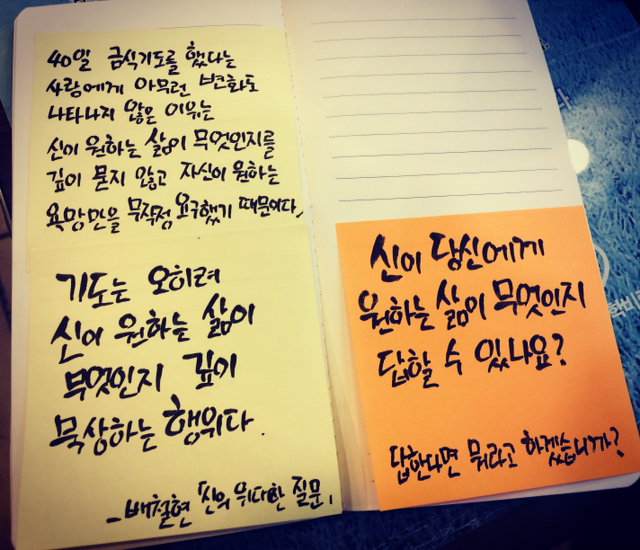 40일 금식기도를 했다는
사람에게 아무런 변화도
나타나지 않은 이유는
신이 원하는 삶이 무엇인지를
깊이 묻지 않고 자신이 원하는
욕망만을 무작정 요구했기 때문이다.
기도는 오히려
신이 원하는 삶이
무엇인지 깊이
묵상하는 행위다.
-배철현 「신의 위대한 질문」
신이 당신에게
원하는 삶이 무엇인지
답할 수 있나요?
답한다면 뭐라고 하겠습니까?